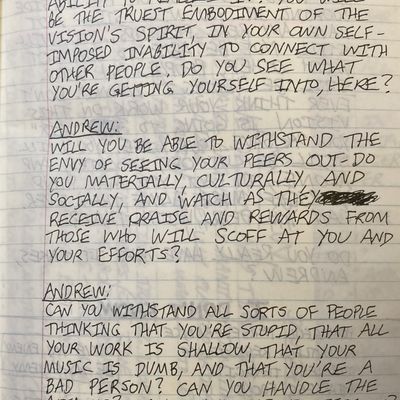 BE THE TRUEST EMBODIMENT OF THE
VISION'S SPIRIT, IN YOUR OWN SELF-
IMPOSED INABILITY TO CONNECT WITH
OTHER PEOPLE. DO YOU SEE WHAT
YOU'RE GETTING YOURSELF INTO, HERE?
ANDREW:
WILL YOU BE ABLE TO WITHSTAND THE
ENVY OF SEEING YOUR PEERS OUT-DO
YOU MATERIALLY, CULTURALLY, AND
SOCIALLY, AND WATCH AS THEY
RECEIVE PRAISE AND REWARDS FROM
THOSE WHO WILL SCOFF AT YOU AND
YOUR EFFORTS?
ANDREW:
CAN YOU WITHSTAND ALL SORTS OF PEOPLE
THINKING THAT YOU'RE STUPID, THAT ALL
YOUR WORK IS SHALLOW, THAT YOUR
MUSIC IS DUMB, AND THAT YOU'RE A
BAD PERSON? CAN YOU HANDLE THE